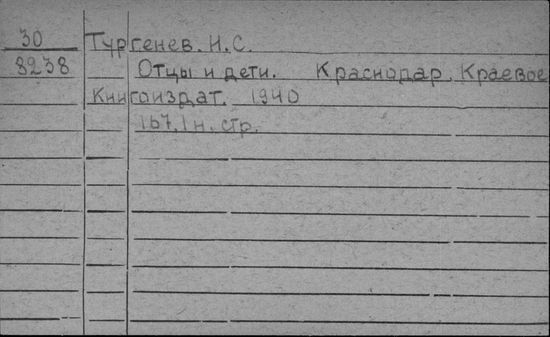 30 Тургенев. И.С.
8238 Отцы и дети. Краснодар. Краевое
Книгоиздат. 1940
167,1 н. стр.